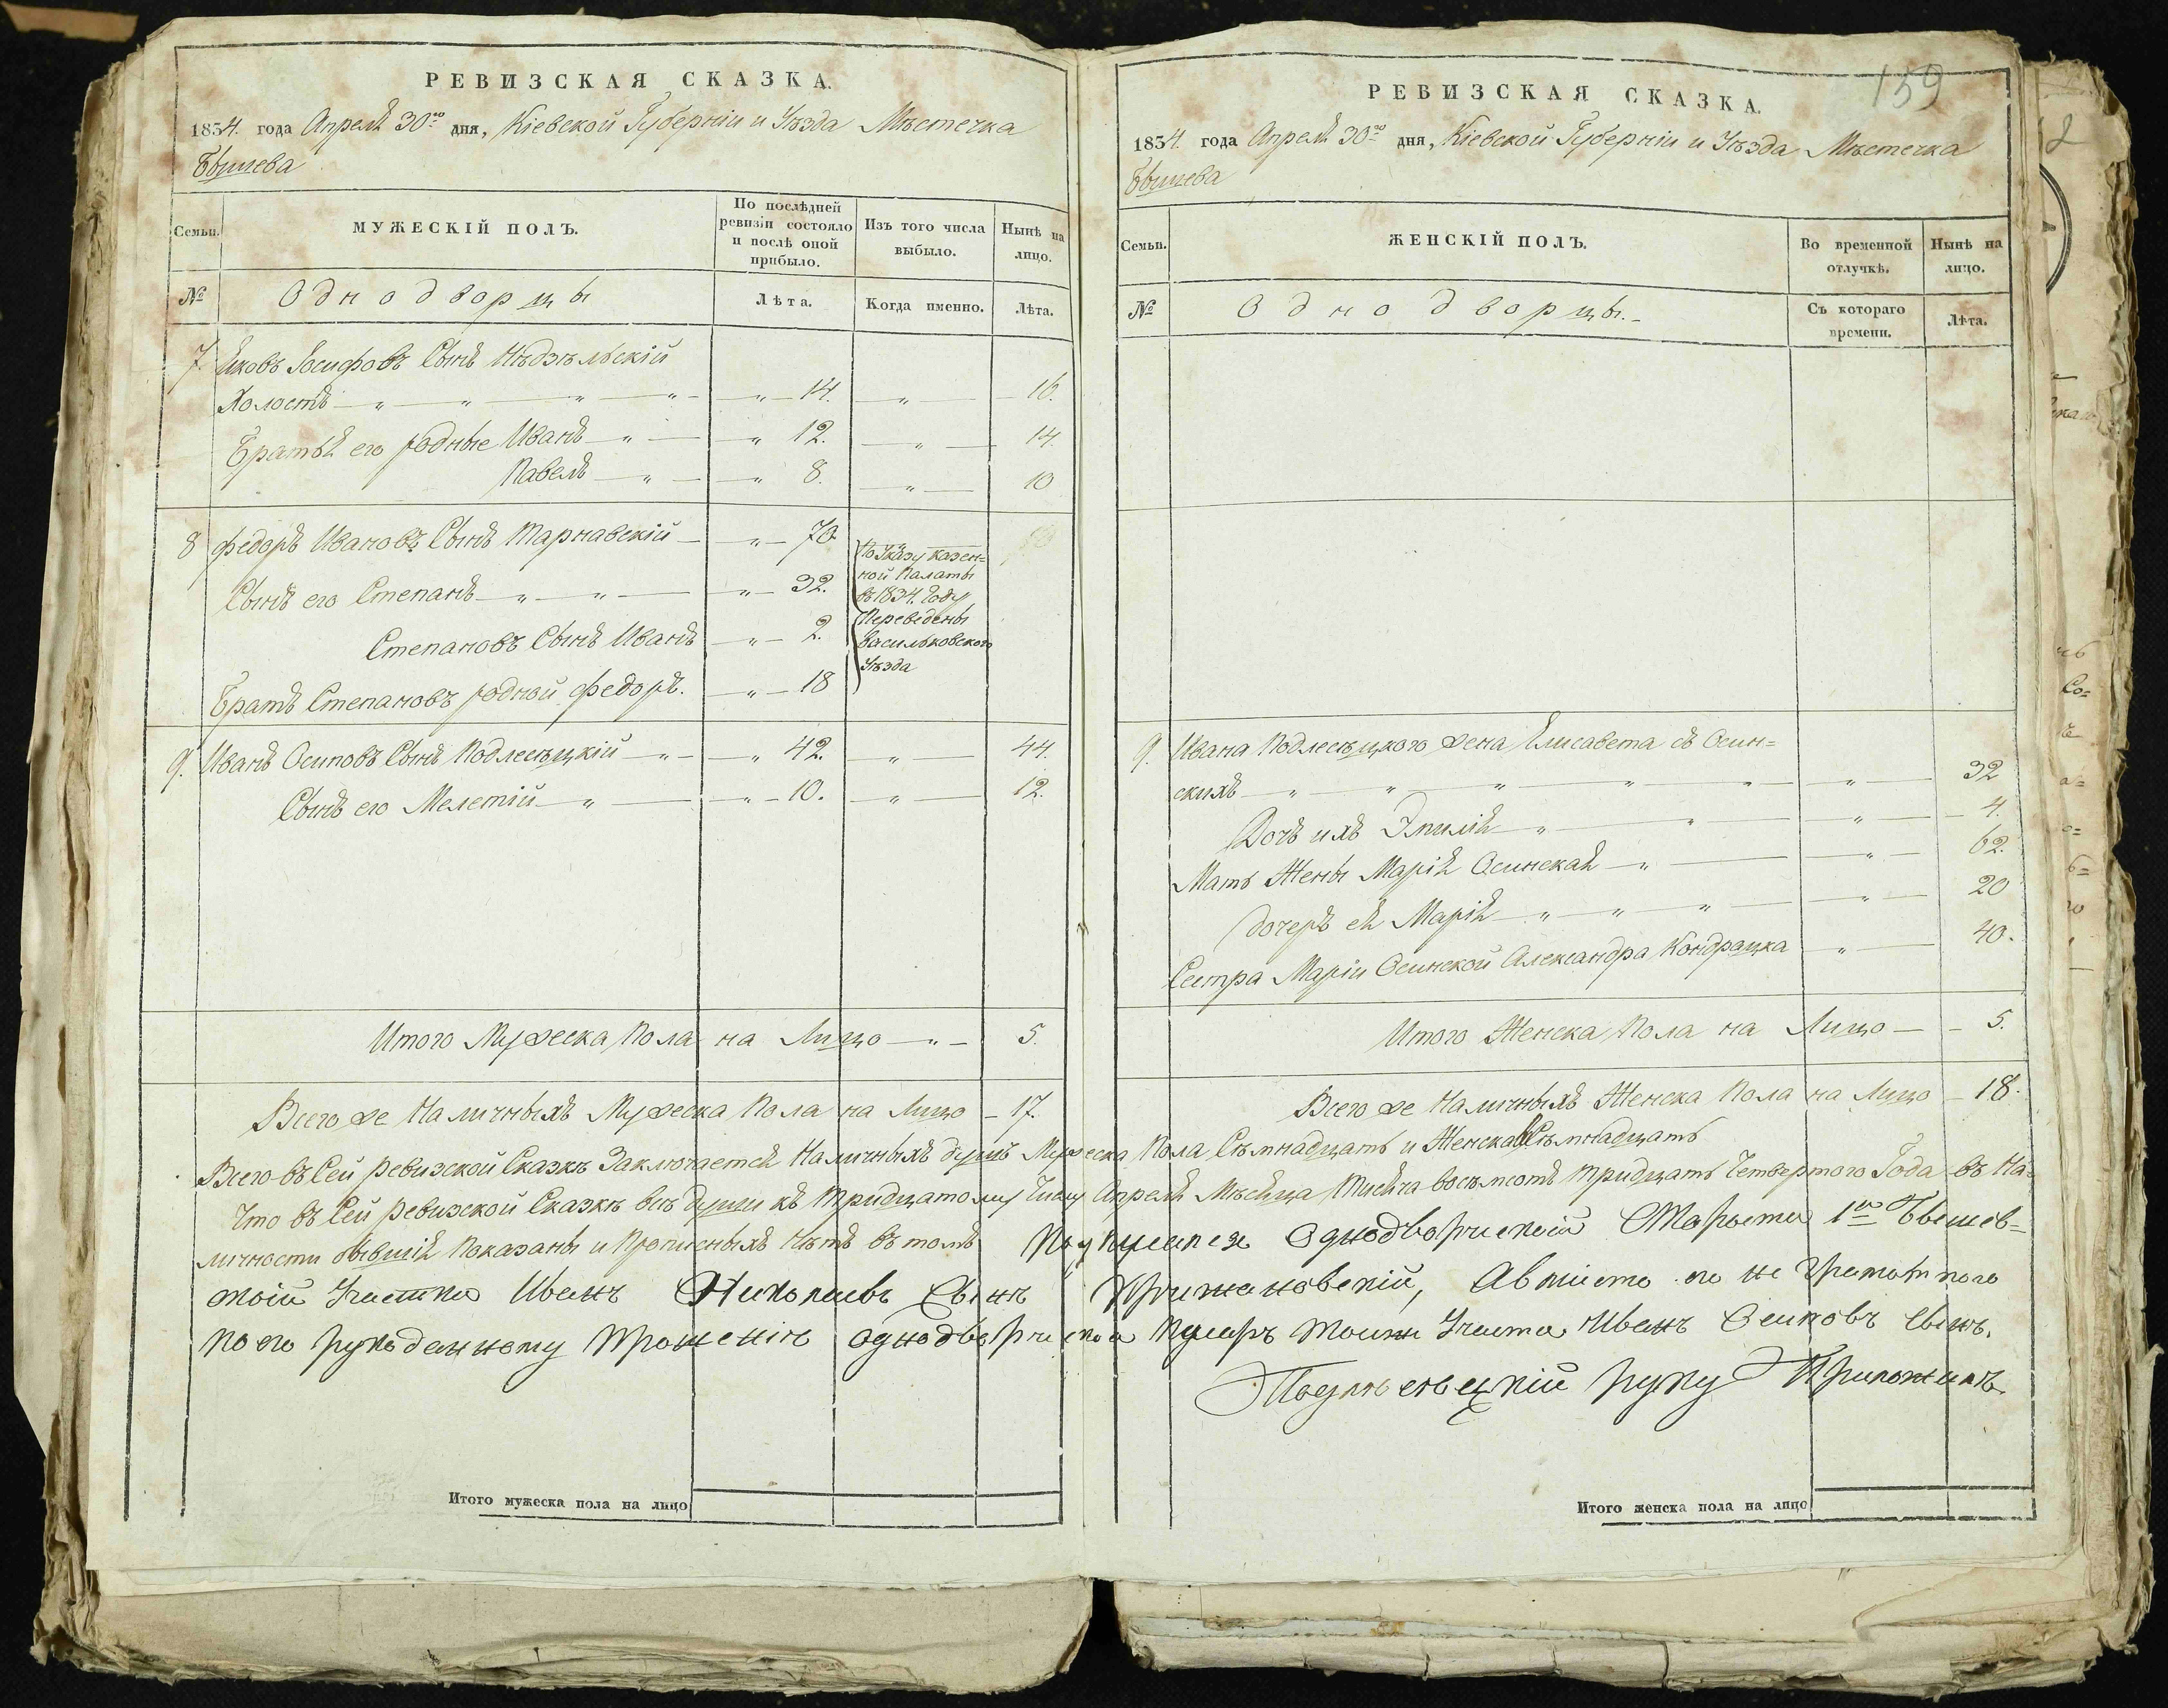 РЕВИЗСКАЯ СКАЗКА.
1834. года Апрелѧ 30го дня, Кіевской Губерніи и Уѣзда Мѣстечка
Бышева
Семьи. МУЖЕСКІЙ ПОЛЪ. По послѣдней ревизіи состояло и послѣ оной прибыло. Изъ того числа выбыло. Нынѣ на лицо.
№ Однодворцы Лѣта. Когда именно. Лѣта.
7. Яковъ Іосифовъ Сынъ Нѣдзѣльскій
Холостъ — „ — „ — „ — „ — „ — 14. — „ — 16.
Братьѧ его родные Иванъ — „ — „ 12. — „ — 14.
Павелъ — „ — „ 8. — „ — 10
8 Федоръ Ивановъ Сынъ Тарнавскій — „ — 70
Сынъ его Степанъ — „ — „ — „ — 32.
Степановъ Сынъ Иванъ — „ — 2.
Братъ Степановъ родной Федоръ. — „ — 18
По Указу казен=
ной Палаты
въ 1834. Году
Переведены
Васильковского
Уѣзда
9. Иванъ Осиповъ Сынъ Подлесѣцкій — „ — „ 42. — „ — 44.
Сынъ его Мелетій — „ — „ — 10. — „ — 12.
Итого Мужеска Пола на Лицо — „ — 5.
Всего же Наличныхъ Мужеска Пола на Лицо — 17.
РЕВИЗСКАЯ СКАЗКА.
159
1834. года Апрелѧ 30го дня, Кіевской Губерніи и Уѣзда Мѣстечка
Бышева
Семьи. ЖЕНСКІЙ ПОЛЪ. Во временной отлучкѣ. Нынѣ на лицо.
№ Однодворцы. Съ котораго времени. Лѣта.
9. Ивана Подлесѣцкого жена Елисавета съ Осин=
скихъ — „ — „ — „ — „ — „ — 32
Дочъ ихъ Эмиліѧ — „ — „ — „ — 4.
Мать Жены Маріѧ Осинскаѧ — „ — „ — 62.
дочеръ еѧ Маріѧ — „ — „ — „ — „ — 20
Сестра Маріи Осинской Александра Кондрацка — „ — 40.
Итого Женска Пола на Лицо — 5.
Всего же Наличныхъ Женска Пола на Лицо — 18.
Всего въ Сей ревизской Сказкѣ Заключаетсѧ Наличныхъ душъ Мужеска Пола Сѣмнадцать и Женска
Что въ Сей ревизской Сказкѣ всѣ души къ тридцатому Числу Апрелѧ Мѣсѧца Тысѧча восѣмсотъ тридцать Четвертого Года въ На=
личности бывшіѧ Показаны и Прописныхъ Нѣтъ въ томъ Однодворческій Староста 1го Бышев=
Участка Иванъ Николаевъ Сынъ Крижановскій, А вмѣсто его не грамотного
по его рукоданному прошенію однодворческій Писарь Участка Иванъ Осиповъ Сынъ.
Подлесѣцкій руку Приложилъ.
Итого мужеска пола на лицо
Итого женска пола на лицо